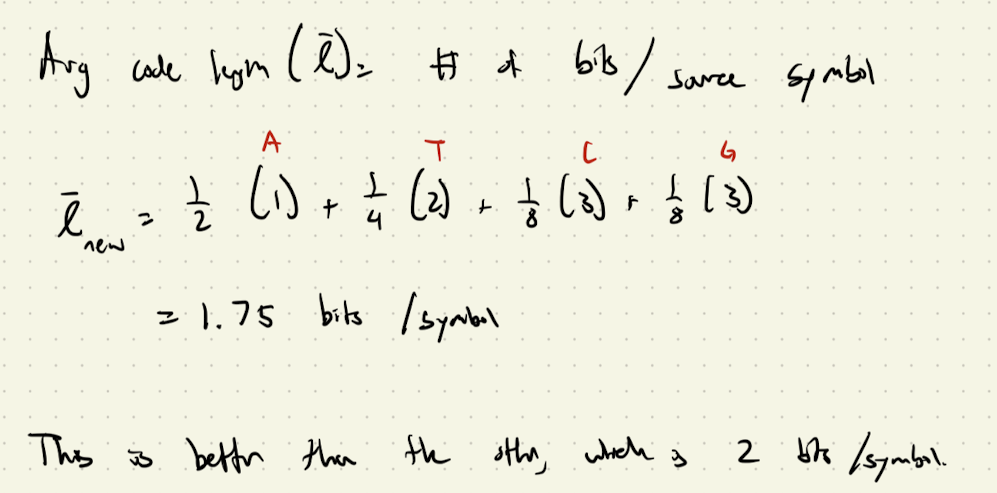 Avg code length (l̄) = # of bits / source symbol
A T C G
l̄new = 1/2 (1) + 1/4 (2) + 1/8 (3) + 1/8 (3)
= 1.75 bits / symbol
This is better than the other, which is 2 bits / symbol.